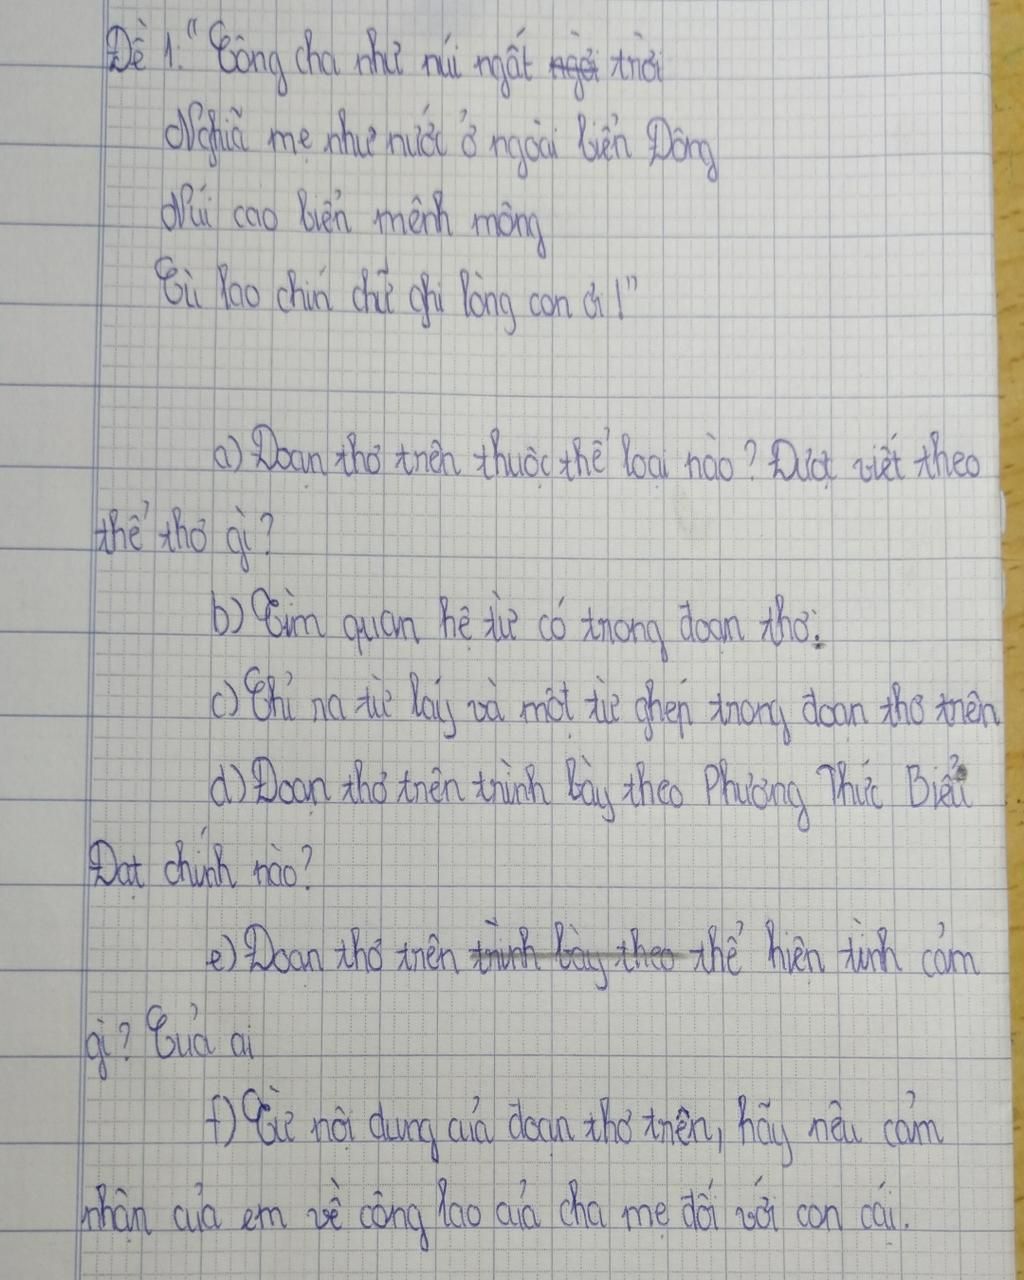 Đề 1: "Công cha như núi ngất ngời trời
Nghĩa mẹ như nước ở ngoài biển Đông
Núi cao biển mênh mông
Cù lao chín chữ ghi lòng con ơi!"
a) Đoạn thơ trên thuộc thể loại nào? Được viết theo
thể thơ gì?
b) Tìm quan hệ từ có trong đoạn thơ.
c) Chỉ ra từ láy và một từ ghép trong đoạn thơ trên
d) Đoạn thơ trên trình bày theo Phương Thức Biểu
Đạt chính nào?
e) Đoạn thơ trên trình bày theo thể hiện tình cảm
gì? Của ai
f) Từ nội dung của đoạn thơ trên, hãy nêu cảm
nhận của em về công lao của cha mẹ đối với con cái.